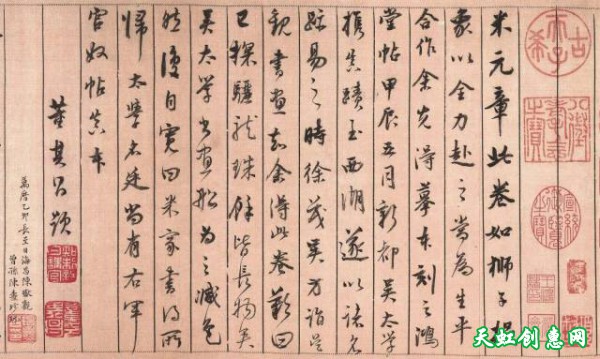 古希天子
八徵耄念之寶
宣統御覽之寶
米元章此卷如獅子捉
象以全力赴之當為生平
合作余先得摹本刻之鴻
堂帖甲辰五月新都吳太學
攜真蹟至西湖遂以諸名
跡易之時徐茂吳方詣吳
觀書畫知余得此卷歎曰
已探驪龍珠餘皆長物矣
吳太學書畫船為之減色
然復自寬曰米家書得所
歸太學名廷尚有右軍
官奴帖真本
董其昌題
萬曆乙卯長至日海昌陳瓛觀
曾孫陳
天虹创惠网